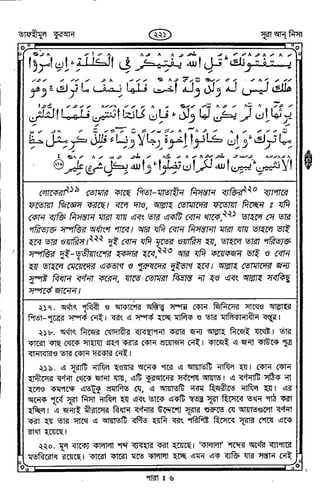 তাফহীমুল কুরআন
২২১
সূরা আন্ নিসা
يَسْتَفْتُونَكَ ۖ قُلِ اللَّهُ يُفْتِيكُمْ فِي الْكَلَالَةِ ۚ إِنِ امْرُؤٌا
هَلَكَ لَيْسَ لَهُ وَلَدٌ وَلَهُ أُخْتٌ فَلَهَا نِصْفُ مَا تَرَكَ ۚ وَهُوَ
يَرِثُهَا إِنْ لَمْ يَكُنْ لَهَا وَلَدٌ ۚ فَإِنْ كَانَتَا اثْنَتَيْنِ فَلَهُمَا الثُّلُثَانِ
مِمَّا تَرَكَ ۚ وَإِنْ كَانُوا إِخْوَةً رِجَالًا وَنِسَاءً فَلِلذَّكَرِ مِثْلُ حَظِّ
الْأُنْثَيَيْنِ ۗ يُبَيِّنُ اللَّهُ لَكُمْ أَنْ تَضِلُّوا ۗ وَاللَّهُ بِكُلِّ شَيْءٍ عَلِيمٌ
লোকেরা২১৯ তোমার কাছে পিতা-মাতাহীন নিসন্তান ব্যক্তির২২০ ব্যাপারে
ফতোয়া জিজ্ঞেস করছে। বলে দাও, আল্লাহ তোমাদের ফতোয়া দিচ্ছেন ঃ যদি
কোন ব্যক্তি নিসন্তান মারা যায় এবং তার একটি বোন থাকে,২২১ তাহলে সে তার
পরিত্যক্ত সম্পত্তির অর্ধাংশ পাবে। আর যদি বোন নিসন্তান মারা যায় তাহলে ভাই
হবে তার ওয়ারিস।২২২ দুই বোন যদি মৃতের ওয়ারিস হয়, তাহলে তারা পরিত্যক্ত
সম্পত্তির দুই-তৃতীয়াংশের হকদার হবে,২২৩ আর যদি কয়েকজন ভাই ও বোন
হয় তাহলে মেয়েদের একভাগ ও পুরুষদের দুইভাগ হবে। আল্লাহ তোমাদের জন্য
সুস্পষ্ট বিধান বর্ণনা করেন, যাতে তোমরা বিভ্রান্ত না হও এবং আল্লাহ সবকিছু
সম্পর্কে জানেন।
২১৭. অর্থাৎ পৃথিবী ও আকাশের অস্তিত্ব সম্পন্ন কোন জিনিসের সাথেও আল্লাহর
পিতা-পুত্রের সম্পর্ক নেই। বরং এ সম্পর্ক হচ্ছে মালিক ও তার মালিকানাধীন বস্তুর।
২১৮. অর্থাৎ নিজের খোদায়ীর ব্যবস্থাপনা করার জন্য আল্লাহ নিজেই যথেষ্ট। তার
কারো কাছ থেকে সাহায্য গ্রহণ করার কোন প্রয়োজন নেই। কাজেই এ জন্য কাউকে পুত্র
বানাবারও তার কোন দরকার নেই।
২১৯. এ সূরাটি নাযিল হওয়ার অনেক পরে এ আয়াতটি নাযিল হয়। কোন কোন
হাদীসের বর্ণনা থেকে জানা যায়, এটি কুরআনের সর্বশেষ আয়াত। এ বর্ণনাটি সঠিক না
হলেও কমপক্ষে এতটুকু প্রমাণিত যে, এ আয়াতটি নবম হিজরীতে নাযিল হয়। এর
অনেক পূর্বে সূরা নিসা নাযিল হয় এবং তাকে একটি স্বতন্ত্র সূরা হিসেবে তখন পাঠ করা
হচ্ছিল। এ জন্যই মীরাসের বিধান বর্ণনার উদ্দেশ্যে সূরার শুরুতে যে আয়াতগুলো বর্ণনা
করা হয় তার সাথে এ আয়াতটি বর্ণিত হয়নি বরং পরিশিষ্ট হিসেবে সূরার শেষে একে
রাখা হয়েছে।
২২০. মূল বাক্যে কালালা শব্দ ব্যবহার করা হয়েছে। 'কালালা' শব্দের অর্থের ব্যাপারে
মতবিরোধ রয়েছে। কারো কারো মতে কালালা হচ্ছে এমন এক ব্যক্তি যার সন্তান নেই
পারা ঃ ৬